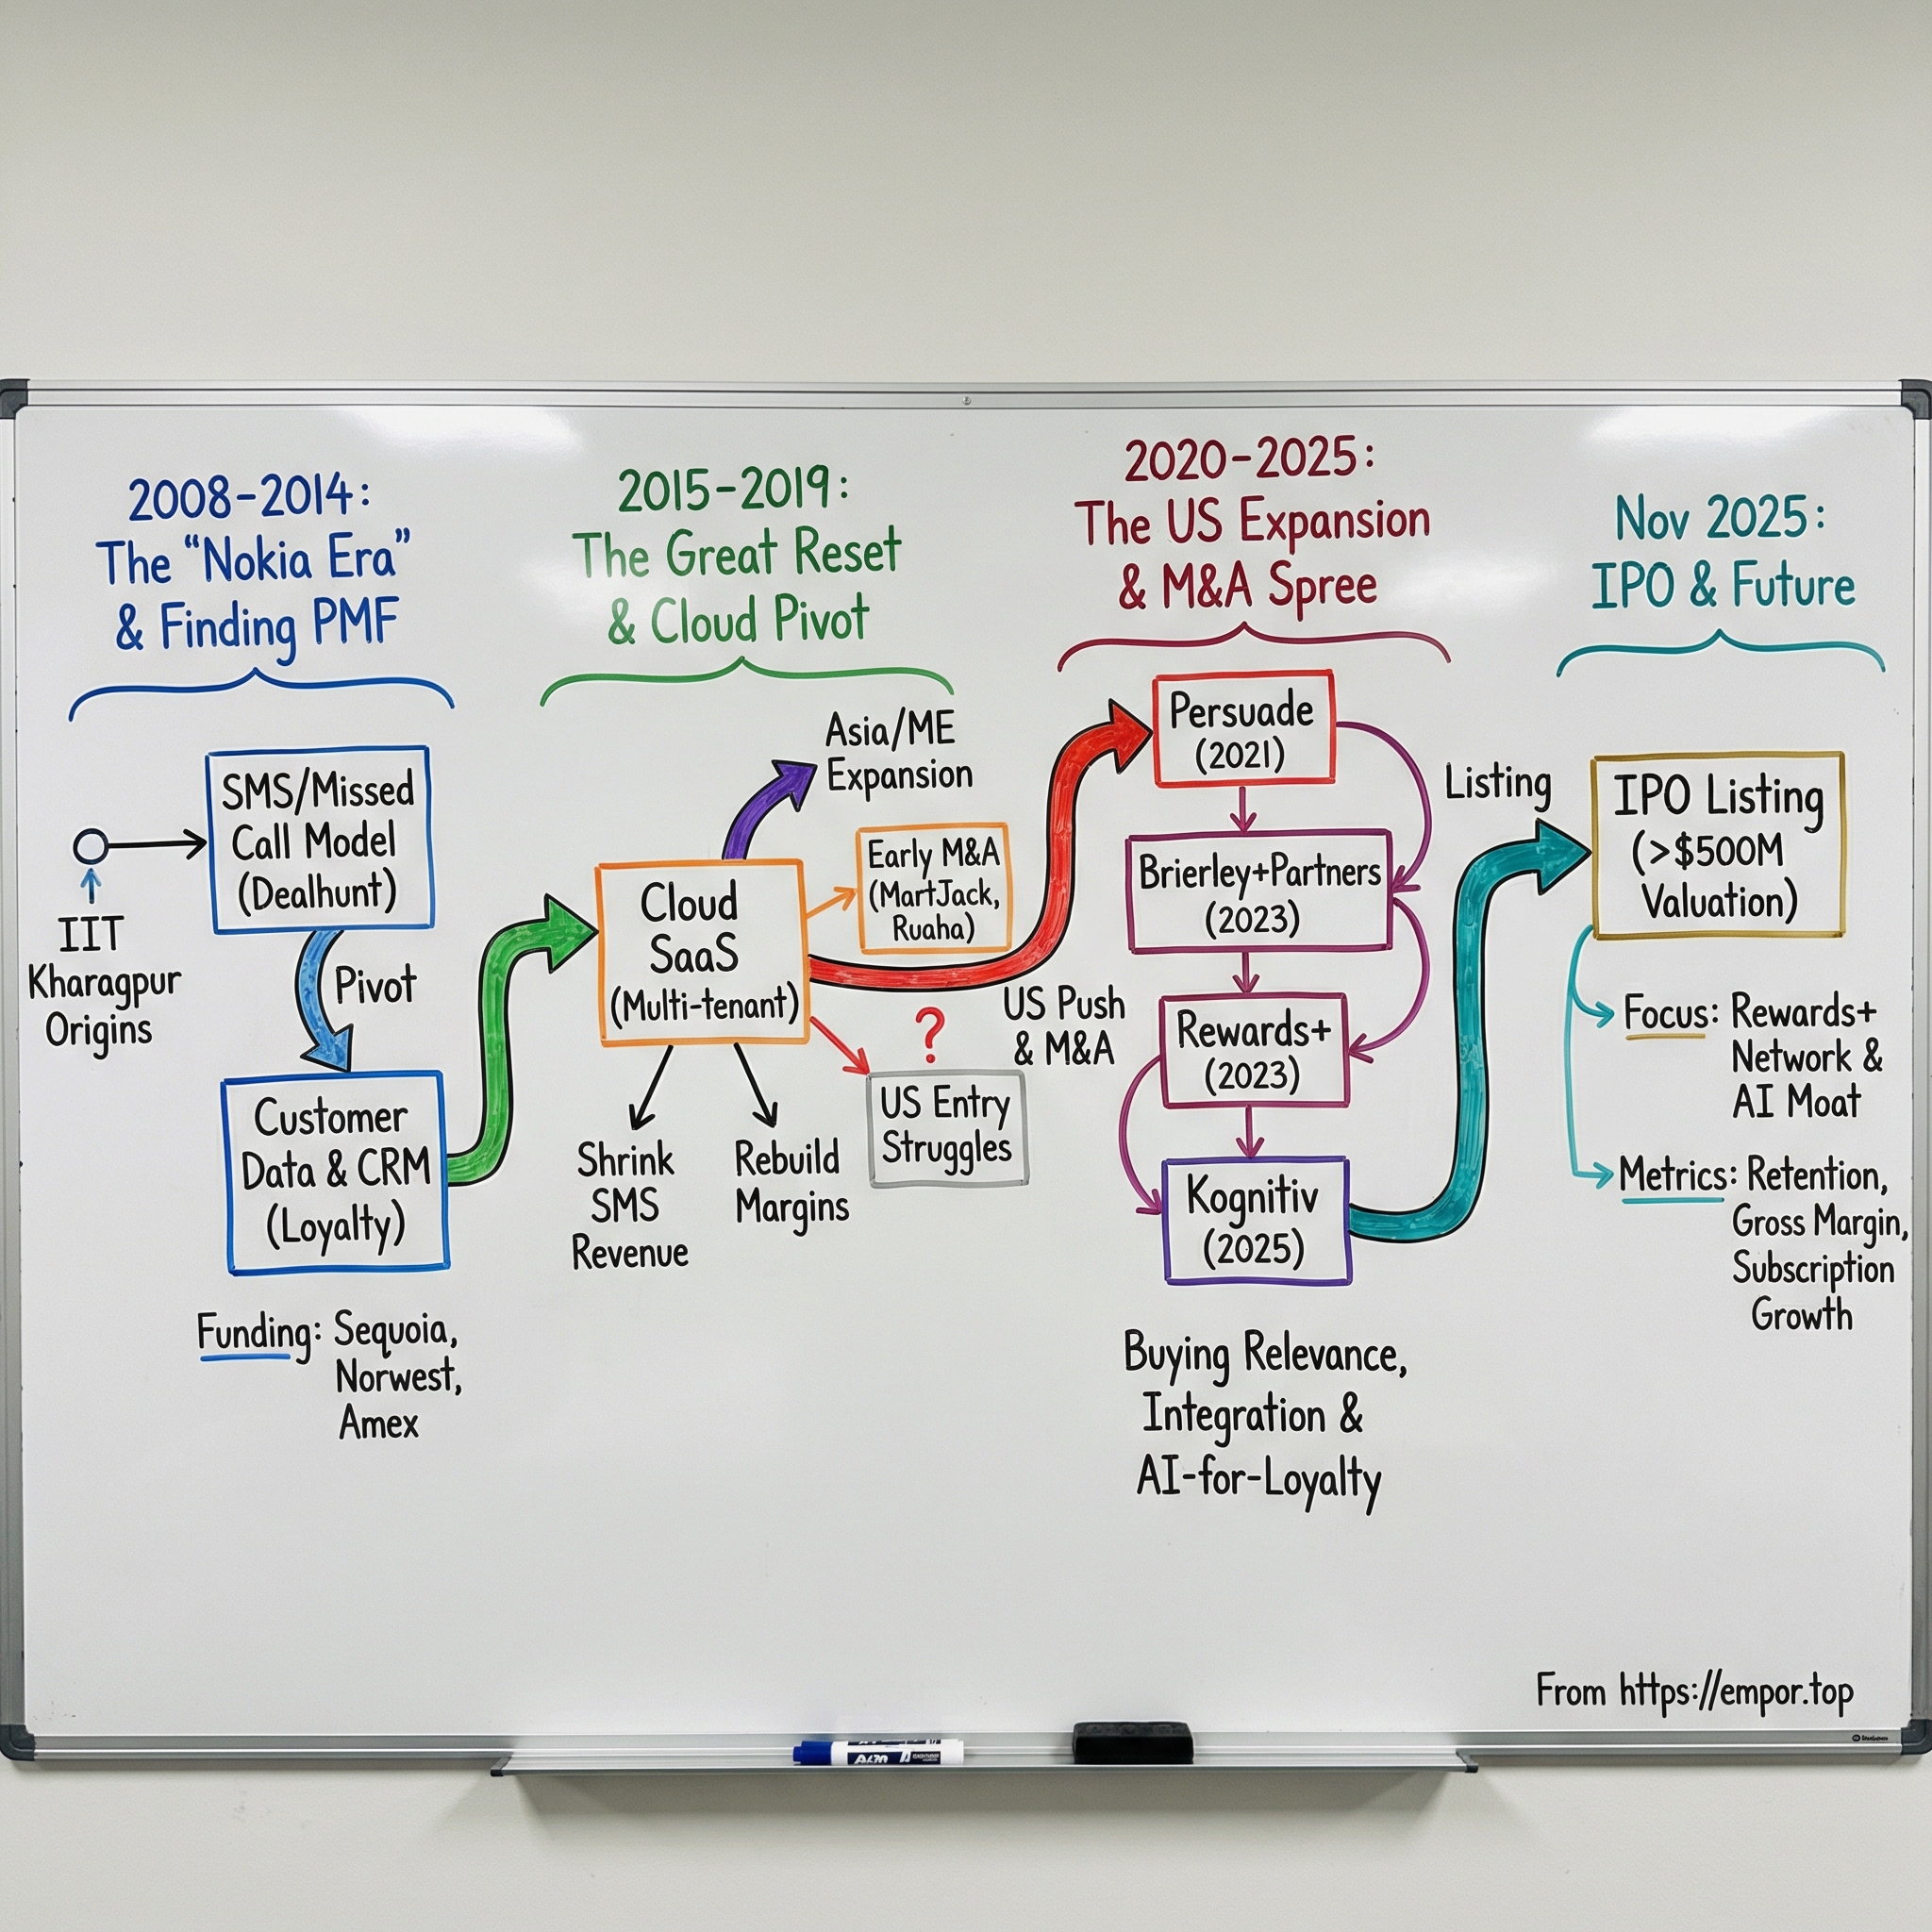 2008-2014:
The "Nokia Era"
& Finding PMF
SMS/Missed
Call Model
(Dealhunt)
IIT
Kharagpur
Origins
Pivot
Customer
Data & CRM
(Loyalty)
Funding: Sequoia,
Norwest,
Amex
2015-2019:
The Great Reset
& Cloud Pivot
Asia/ME
Expansion
Cloud
SaaS
(Multi-tenant)
Early M&A
(MartJack,
Ruaha)
Shrink
SMS
Revenue
Rebuild
Margins
?
US Entry
Struggles
US Push
& M&A
2020-2025:
The US Expansion
& M&A Spree
Persuade
(2021)
Brierley+Partners
(2023)
Rewards+
(2023)
Kognitiv
(2025)
Buying Relevance,
Integration &
AI-for-Loyalty
Listing
Nov 2025:
IPO & Future
IPO Listing
(>$500M
Valuation)
Focus: Rewards+
Network &
AI Moat
Metrics: Retention,
Gross Margin,
Subscription
Growth
From https://empor.top